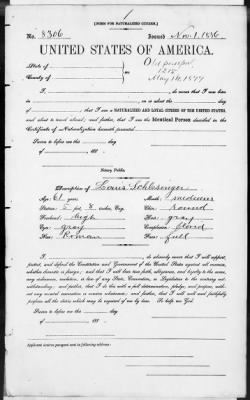 [FORM FOR NATURALIZED CITIZEN.]
No. 8306 Issued Nov. 1. 1886
UNITED STATES OF AMERICA.
State of
County of
Old passport
1215
May 16, 1877
I, do swear that I was born
in on or about the day
of , that I am a NATURALIZED AND LOYAL CITIZEN OF THE UNITED STATES,
and about to travel abroad; and further, that I am the Identical Person described in the
Certificate of Naturalization herewith presented.
Sworn to before me this day
of 188
Notary Public.
Description of Louis Schlesinger
Age: 61 years Mouth: medium
Stature: 5 feet, 8 inches, Eng. Chin: round
Forehead: high Hair: gray
Eyes: gray Complexion: florid
Nose: Roman Face: full
I, do solemnly swear that I will support,
protect, and defend the Constitution and Government of the United States against all enemies,
whether domestic or foreign; and that I will bear true faith, allegiance, and loyalty to the same,
any ordinance, resolution, or law of any State, Convention, or Legislature to the contrary not-
withstanding; and further, that I do this with a full determination, pledge, and purpose, with-
out any mental reservation or evasion whatsoever; and further, that I will well and faithfully
perform all the duties which may be required of me by law. So help me God.
Sworn to before me this day
of 188
Applicant desires passport sent to following address: